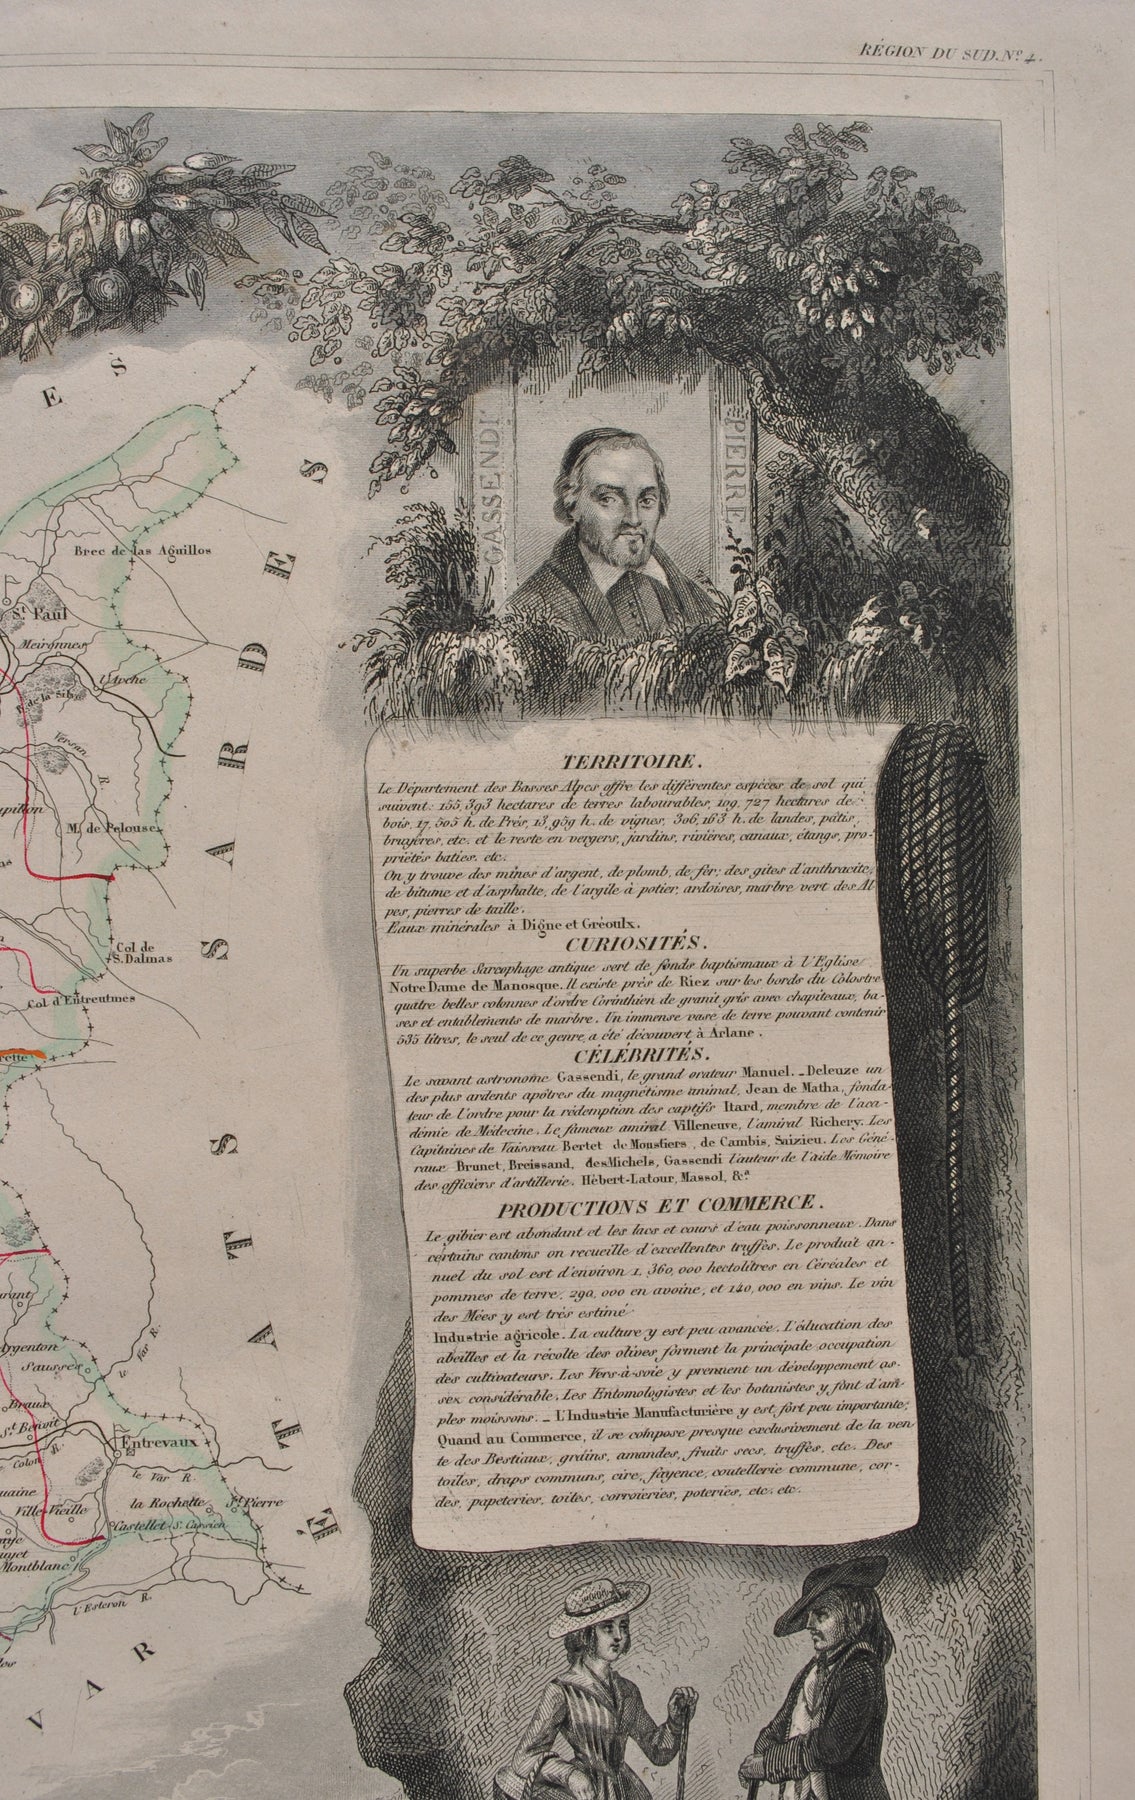 RÉGION DU SUD. Nº 4.
GASSENDI
PIERRE
TERRITOIRE.
Le Département des Basses Alpes offre les différentes espèces de sol qui
suivent: 155,393 hectares de terres labourables, 109,727 hectares de
bois, 17,505 h. de Prés, 13,959 h. de vignes, 306,163 h. de landes, pâtis,
bruyères, etc. et le reste en vergers, jardins, rivières, canaux, étangs, pro-
priétés baties, etc.
On y trouve des mines d'argent, de plomb, de fer; des gites d'anthracite,
de bitume et d'asphalte, de l'argile à potier, ardoises, marbre vert des Al
pes, pierres de taille.
Eaux minérales à Digne et Gréoulx.
CURIOSITÉS.
Un superbe Sarcophage antique sert de fonds baptismaux à l'Eglise
Notre Dame de Manosque. Il existe près de Riez sur les bords du Colostre
quatre belles colonnes d'ordre Corinthien de granit gris avec chapiteaux, ba-
ses et entablements de marbre. Un immense vase de terre pouvant contenir
535 litres, le seul de ce genre, a été découvert à Arlane.
CÉLÉBRITÉS.
Le savant astronome Gassendi, le grand orateur Manuel. _ Deleuze un
des plus ardents apôtres du magnétisme animal, Jean de Matha, fonda-
teur de l'ordre pour la rédemption des captifs Itard, membre de l'aca-
démie de Médecine. Le fameux amiral Villeneuve, l'amiral Richery. Les
Capitaines de Vaisseau Bertet de Moustiers, de Cambis, Saizieu. Les Géné-
raux Brunet, Breissand, des Michels, Gassendi l'auteur de l'aide Mémoire
des officiers d'artillerie. Hébert-Latour, Massol, &ª
PRODUCTIONS ET COMMERCE.
Le gibier est abondant et les lacs et cours d'eau poissonneux. Dans
certains cantons on recueille d'excellentes truffes. Le produit an-
nuel du sol est d'environ 1,360,000 hectolitres en Céréales et
pommes de terre, 290,000 en avoine, et 140,000 en vins. Le vin
des Mées y est très estimé
Industrie agricole. La culture y est peu avancée. L'éducation des
abeilles et la récolte des olives forment la principale occupation
des cultivateurs. Les Vers-à-soie y prennent un développement as-
sex considérable. Les Entomologistes et les botanistes y font d'am-
ples moissons. _ L'Industrie Manufacturière y est fort peu importante;
Quand au Commerce, il se compose presque exclusivement de la ven
te des Bestiaux, grains, amandes, fruits secs, truffes, etc. Des
toiles, draps communs, cire, fayence, coutellerie commune, cor-
des, papeteries, toiles, corroieries, poteries, etc. etc.
E S
ÉTATS SARDES
VAR
Brec de las Aguillos
St. Paul
Meironnes
l'Arche
Versan R.
M. de Pelouse
Col de
S. Dalmas
Col d'Entreutmes
le Var R.
Argenton
Sausses
Braux
St. Benoit
Entrevaux
le Var R.
Ville-Vieille
la Rochette
St. Pierre
Castellet-St. Cassien
Montblanc
l'Esteron R.